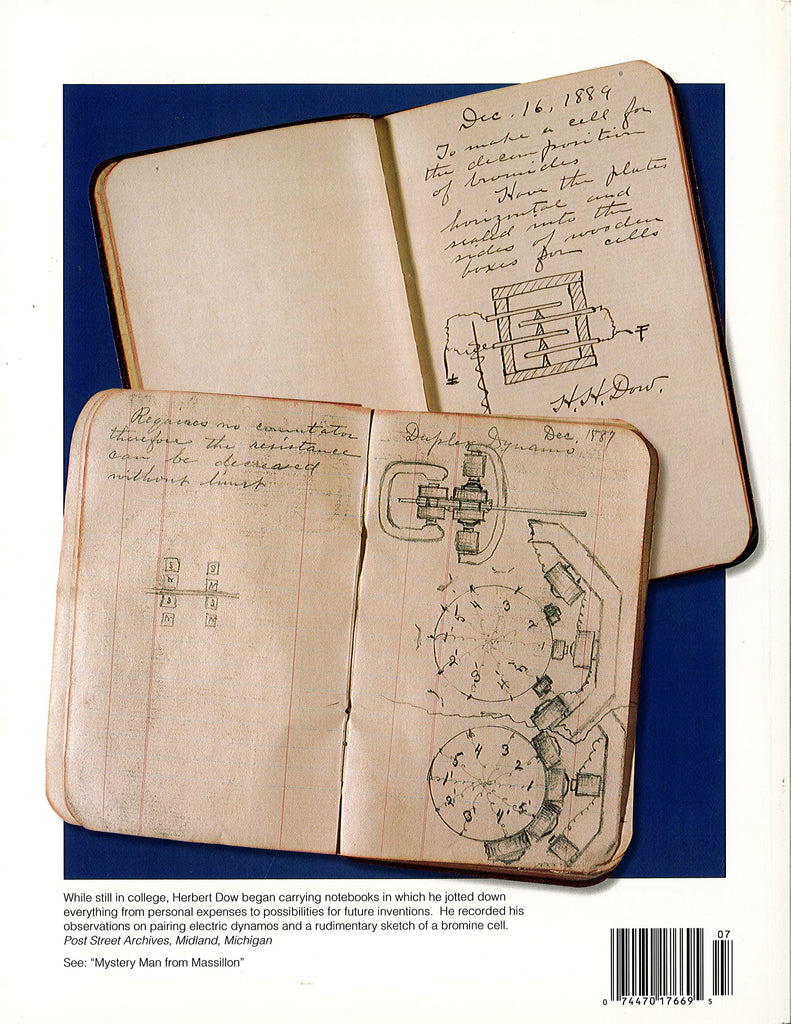 Dec. 16, 1889
To make a cell for
the decomposition
of bromides
Have the plates
horizontal and
sealed into the
sides of wooden
boxes for cells
H. H. Dow.
Requires no comutator
therefore the resistance
can be decreased
without hurt
S S
N N
S S
N N
Duplex Dynamo Dec, 1887
5 4 3
2
1
2' 3' 4'
5 4 3
1' 1
2' 3' 4' 5'
While still in college, Herbert Dow began carrying notebooks in which he jotted down
everything from personal expenses to possibilities for future inventions. He recorded his
observations on pairing electric dynamos and a rudimentary sketch of a bromine cell.
Post Street Archives, Midland, Michigan
See: “Mystery Man from Massillon”
07
0 74470 17669 5